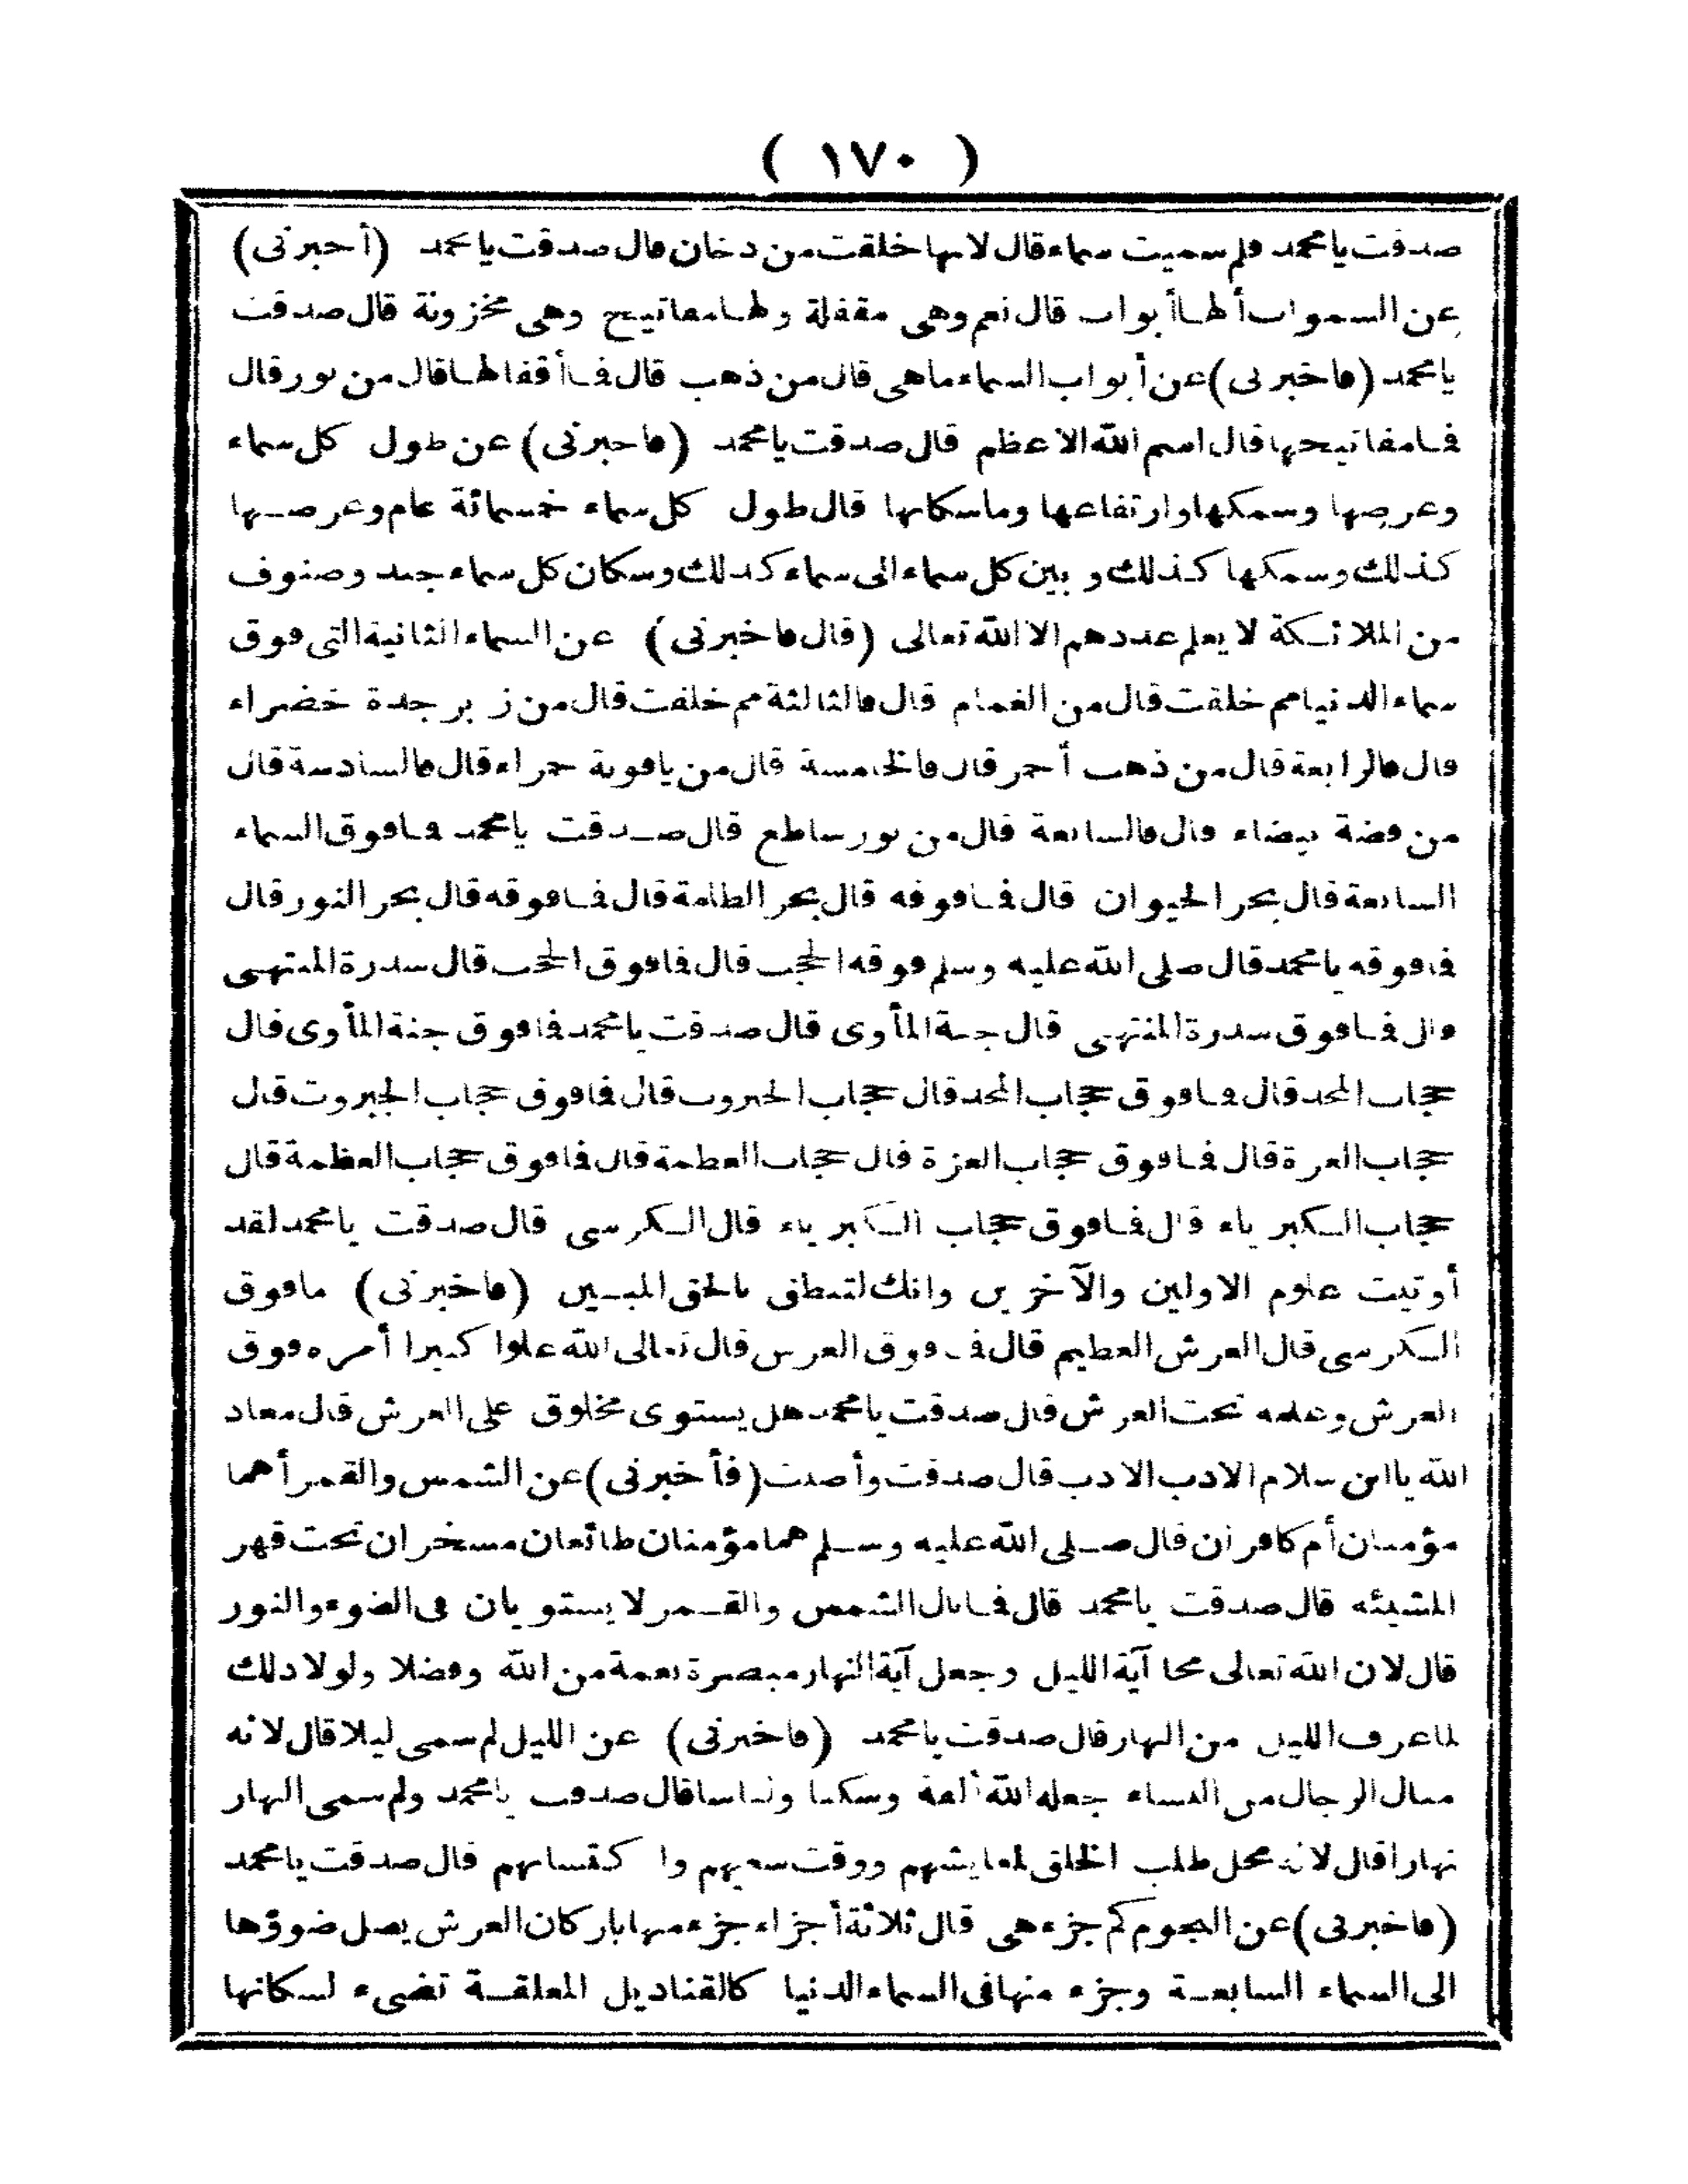 ( ١٧٠ )
صدقت يا محمد فلم سميت سماء قال لانها خلقت من دخان قال صدقت يا محمد (أخبرنى)
عن السموات ألها أبواب قال نعم وهى مقفلة ولها مفاتيح وهى مخزونة قال صدقت
يا محمد (فاخبرنى) عن أبواب السماء ماهى قال من ذهب قال فا أقفالها قال من نور قال
فا مفاتيحها قال اسم الله الاعظم قال صدقت يا محمد (فاخبرنى) عن طول كل سماء
وعرضها وسمكها وارتفاعها وما سكانها قال طول كل سماء خمسمائة عام وعرضها
كذلك وسمكها كذلك و بين كل سماء الى سماء كذلك وسكان كل سماء جند وصنوف
من الملائكة لا يعلم عددهم الا الله تعالى (قال فاخبرنى) عن السماء الثانية التى فوق
سماء الدنيا مم خلقت قال من الغمام قال فالثالثة مم خلقت قال من زبرجدة خضراء
قال فالرابعة قال من ذهب أحمر قال فالخامسة قال من ياقوتة حمراء قال فالسادسة قال
من فضة بيضاء قال فالسابعة قال من نور ساطع قال صدقت يا محمد فا فوق السماء
السابعة قال بحر الحيوان قال فا فوقه قال بحر الظلمة قال فا فوقه قال بحر النور قال
فا فوقه يا محمد قال صلى الله عليه وسلم فوقه الحجب قال فا فوق الحجب قال سدرة المنتهى
قال فا فوق سدرة المنتهى قال جنة المأوى قال صدقت يا محمد فا فوق جنة المأوى قال
حجاب المجد قال فا فوق حجاب المجد قال حجاب الجبروت قال فا فوق حجاب الجبروت قال
حجاب العزة قال فا فوق حجاب العزة قال حجاب العظمة قال فا فوق حجاب العظمة قال
حجاب الكبرياء قال فا فوق حجاب الكبرياء قال الكرسى قال صدقت يا محمد لقد
أوتيت علوم الاولين والآخرين وانك لتنطق بالحق المبين (فاخبرنى) ما فوق
الكرسى قال العرش العظيم قال فا فوق العرش قال تعالى الله علوا كبيرا أمره فوق
العرش وعلمه تحت العرش قال صدقت يا محمد هل يستوى مخلوق على العرش قال معاذ
الله يا ابن سلام الادب الادب قال صدقت وأصبت (فأخبرنى) عن الشمس والقمر أهما
مؤمنان أم كافران قال صلى الله عليه وسلم هما مؤمنان طائعان مسخران تحت قهر
المشيئه قال صدقت يا محمد قال فا بال الشمس والقمر لا يستويان فى الضوء والنور
قال لان الله تعالى محا آية الليل وجعل آية النهار مبصرة نعمة من الله وفضلا ولولا ذلك
لما عرف الليل من النهار قال صدقت يا محمد (فاخبرنى) عن الليل لم سمى ليلا قال لانه
منال الرجال من النساء جعله الله ألفة وسكنا ولباسا قال صدقت يا محمد ولم سمى النهار
نهارا قال لانه محل طلب الخلق لمعايشهم ووقت سعيهم واكتسابهم قال صدقت يا محمد
(فاخبرنى) عن النجوم كم جزء هى قال ثلاثة أجزاء جزء منها باركان العرش يصل ضوؤها
الى السماء السابعة وجزء منها فى السماء الدنيا كالقناديل المعلقة تضىء لسكانها